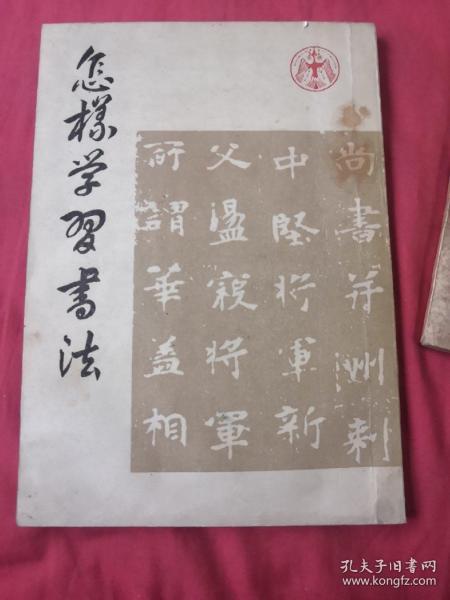 怎樣学習書法
尚書并洲刺
中堅将軍新
父盪寇将軍
所謂華盖相
孔夫子旧书网
www.kongfz.com